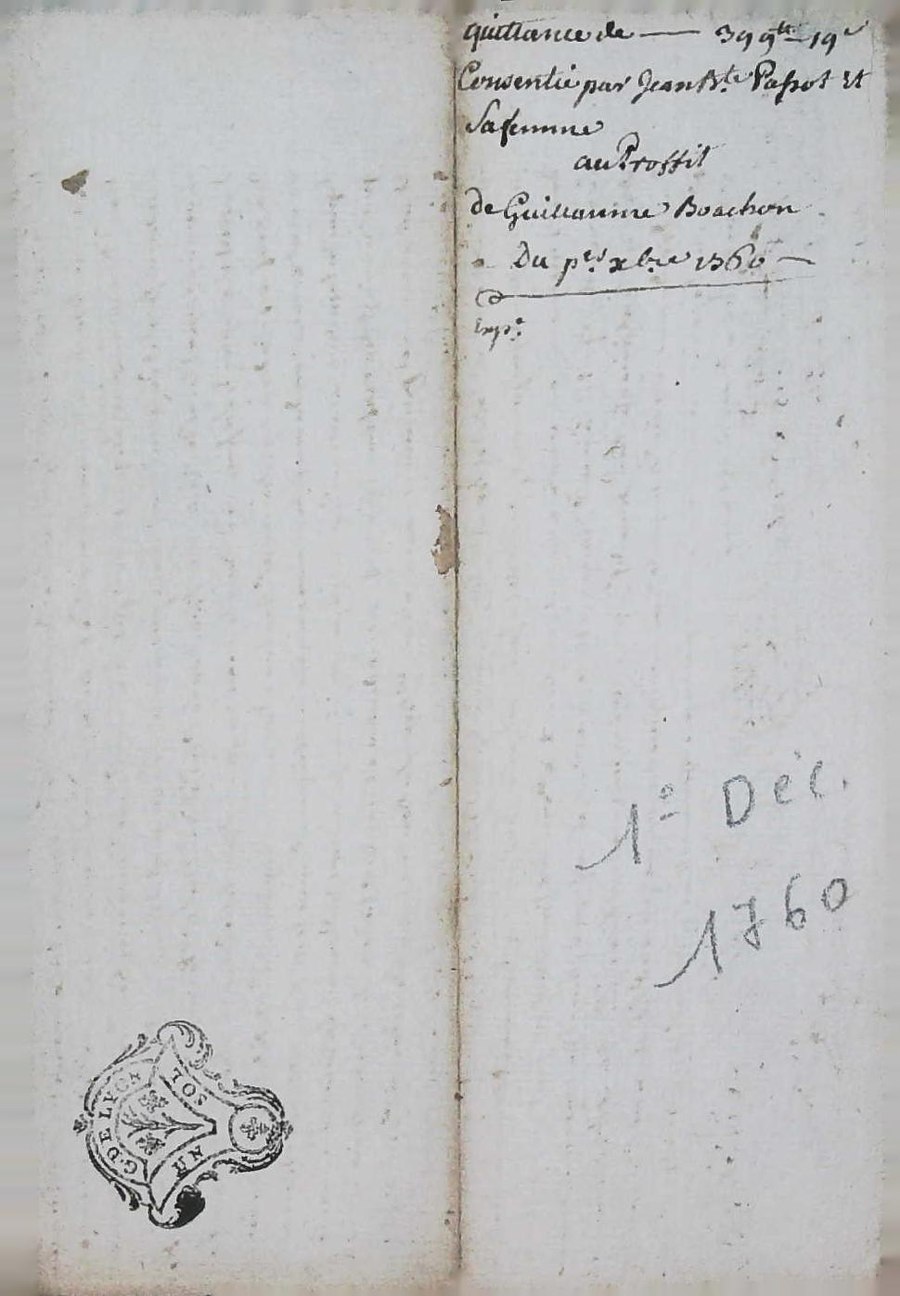 quittance de — 399tt 19s
Consentie par Jean Bte Papot Et
Sa femme
au Proffit
de Guillaume Boachon
Du per xbre 1760 —
Expe
1º Déc.
1760
G. DE LYON
UN SOL